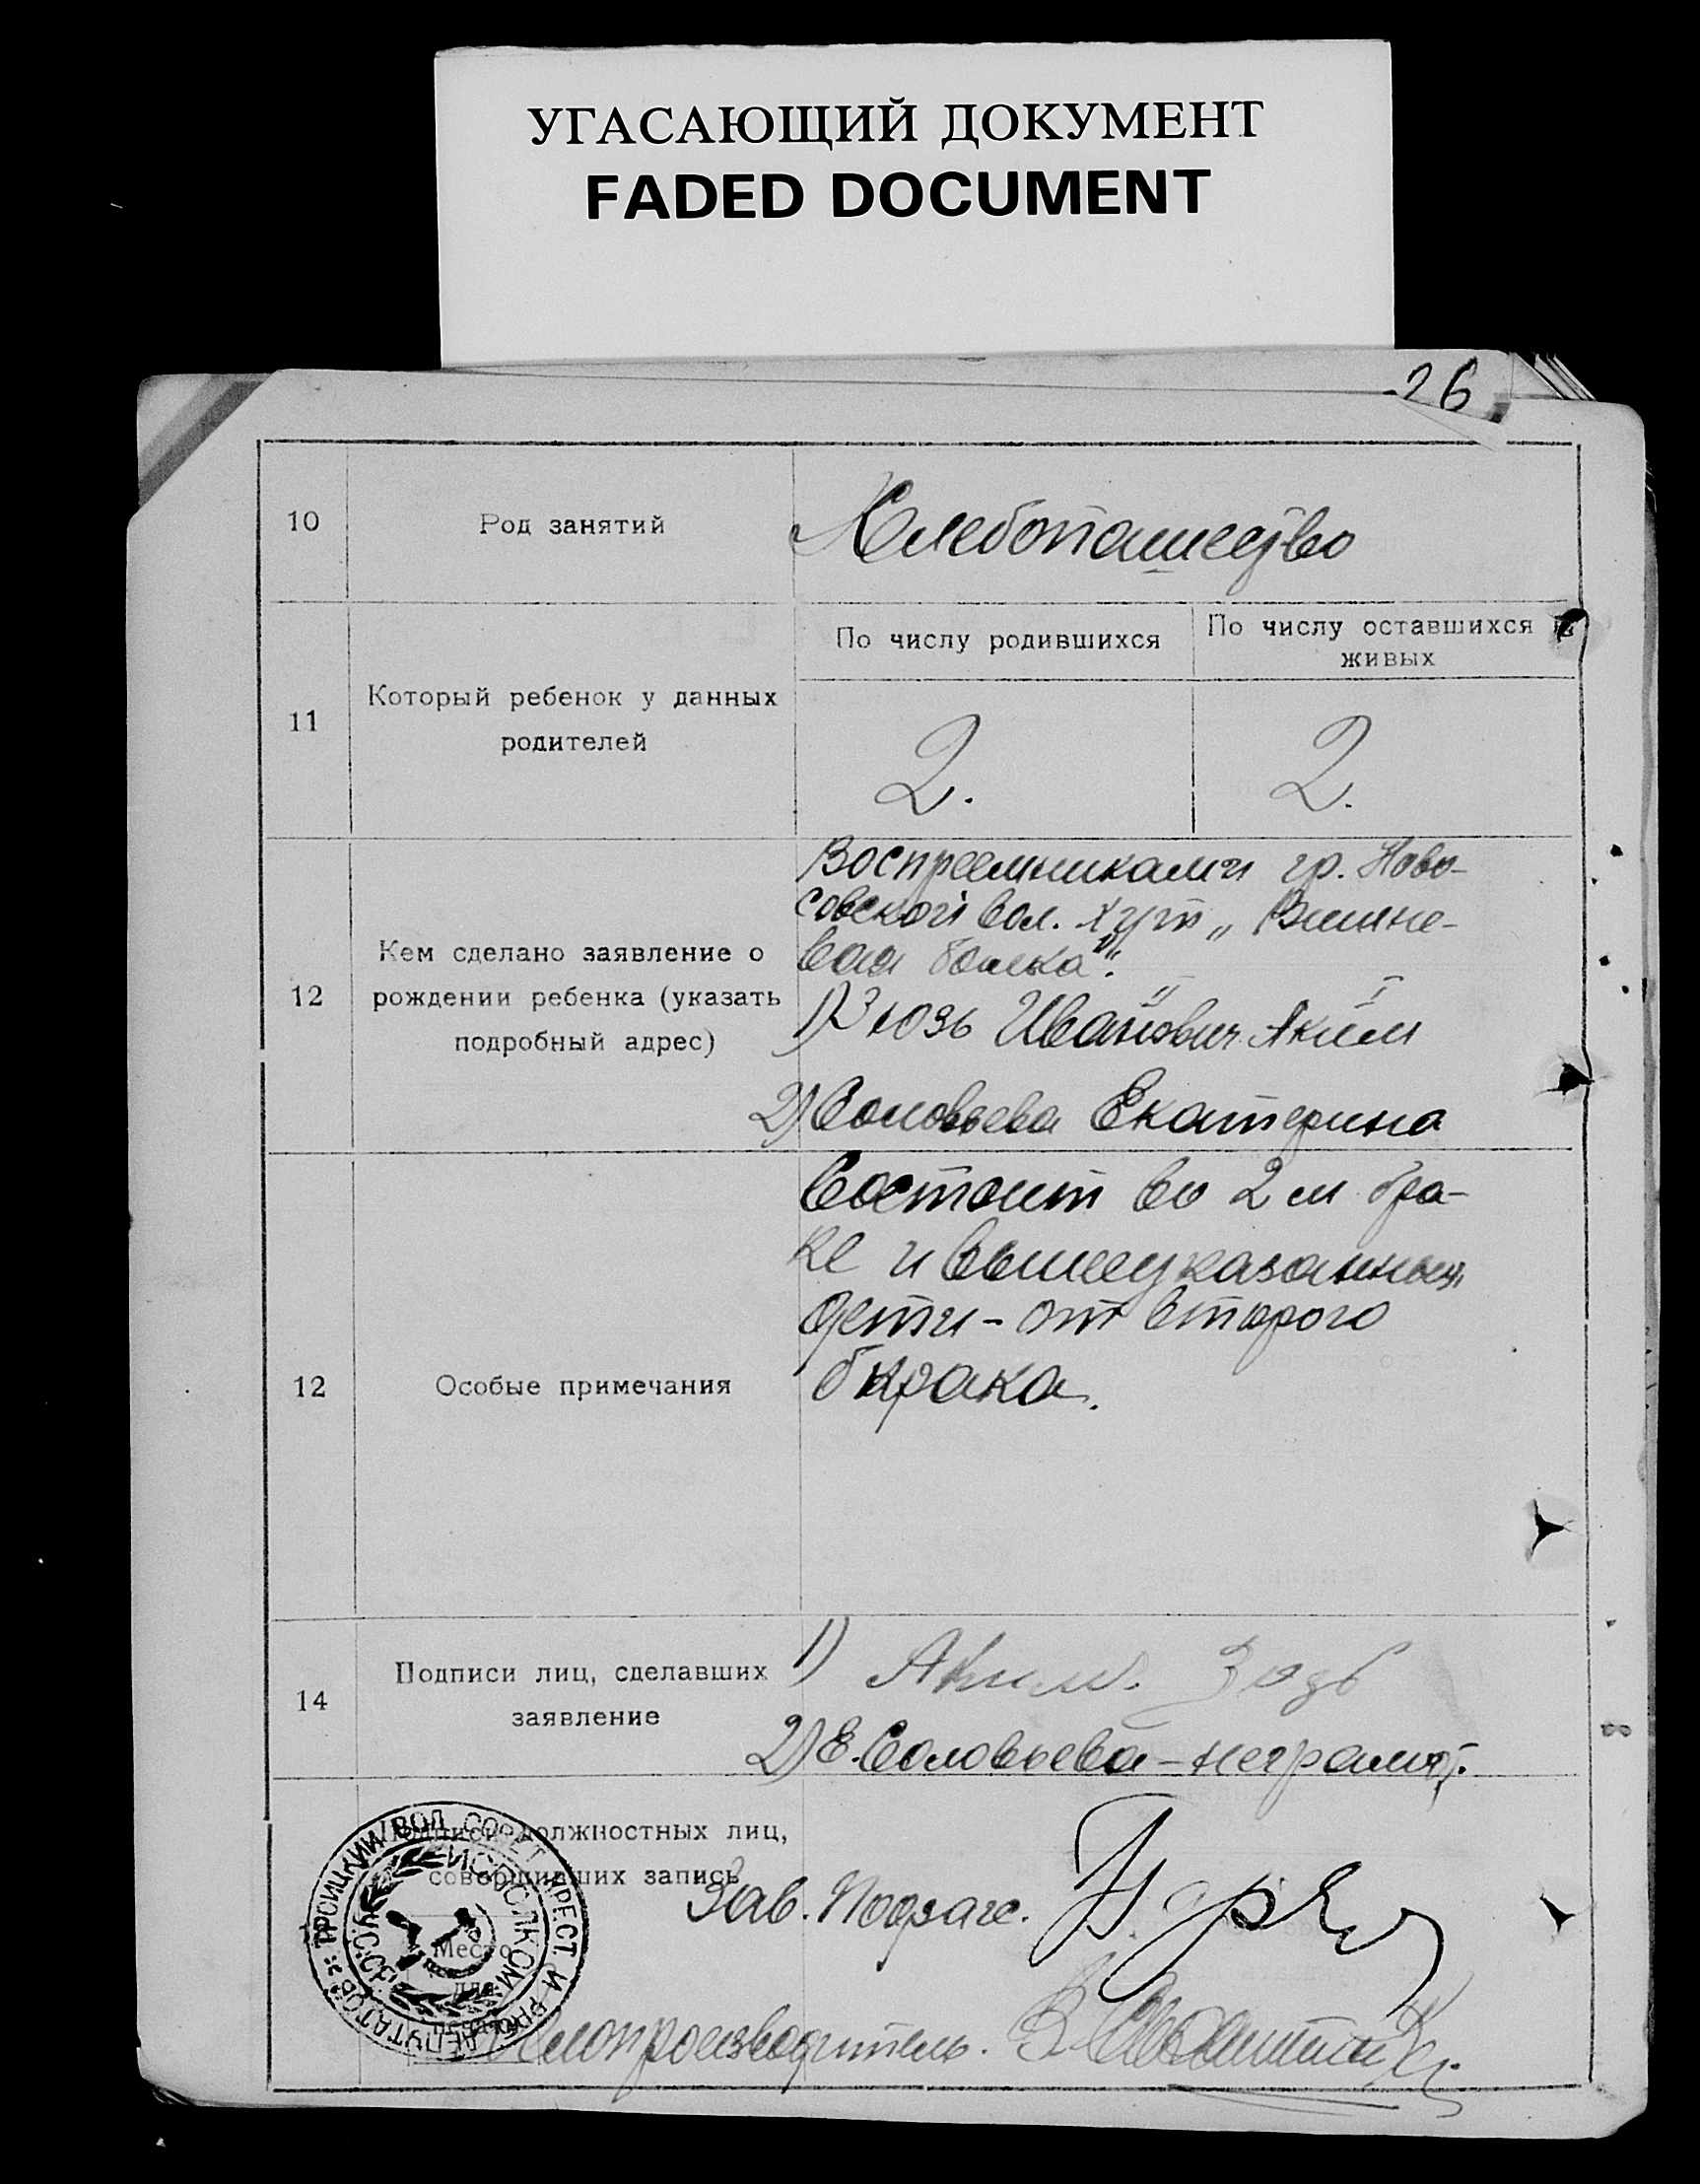 УГАСАЮЩИЙ ДОКУМЕНТ
FADED DOCUMENT
26
10
Род занятий
Хлебопашество
11
Который ребенок у данных
родителей
По числу родившихся
По числу оставшихся в
живых
2.
2.
12
Кем сделано заявление о
рождении ребенка (указать
подробный адрес)
Воспреемниками гр. Ново-
совской вол. хут „Вишне-
вая балка".
1) Зюзь Иванович Аким
2) Соловьева Екатерина
12
Особые примечания
Состоит во 2 м бра-
ке и вышеуказанные
дети - от второго
брака.
14
Подписи лиц, сделавших
заявление
1) Аким. Зюзь
2) Е. Соловьева - неграмот.
Подписи должностных лиц,
совершивших запись
Зав. Подзагс.
Место
для
печати
Делопроизводитель.
ТРОИЦКИЙ ВОЛ. СОВЕТ КРЕСТ. И РАБ. ДЕПУТАТОВ
ИСПОЛКОМ
У.С.С.Р.